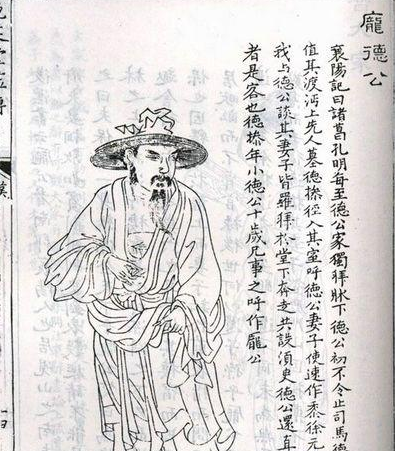 龐德公
襄陽記曰諸葛孔明每至德公家獨拜牀下德公初不令止司馬德
值其渡沔上先人墓德操徑入其室呼德公妻子使速作黍徐元
我与德公談其妻子皆羅拜於堂下奔走共設須臾德公還直
者是客也德操年小德公十歲兄事之呼作龐公